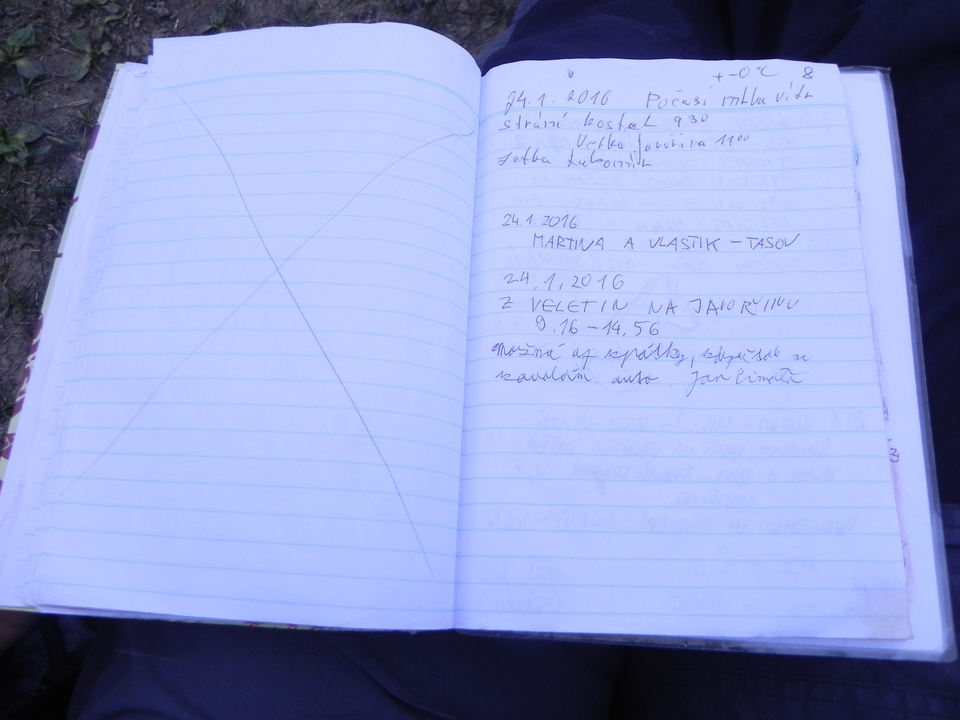 +-0°C 8
24.1.2016 Počasí mlha vítr
strání kostel 9 30
Velka Javořina 11 00
Lubomír
24.1.2016
MARTINA A VLASTIK - TASOV
24.1.2016
Z VELETIN NA JAVOŘINU
9.16-14.56
možná až zpátky,
auto. Jan
3